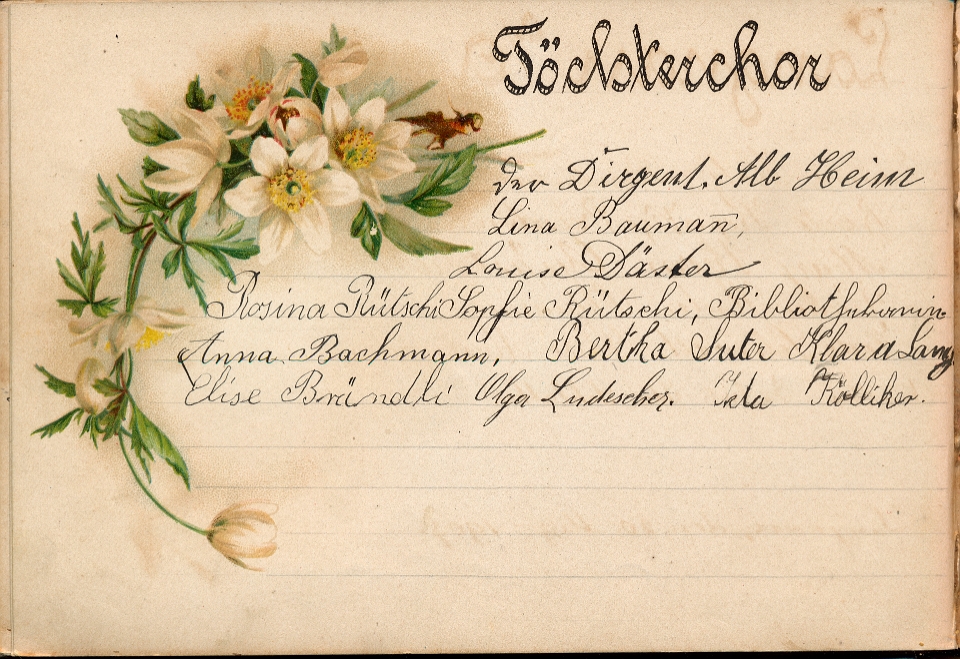 Töchterchor
der Dirgent. Alb Heim
Lina Bauman̄,
Louise Däster
Rosina Rütschi Sophie Rütschi, Bibliothekarin.
Anna Bachmann, Bertha Suter Klara Lang
Elise Brändli Olga Ludescher. Ida Kölliker.